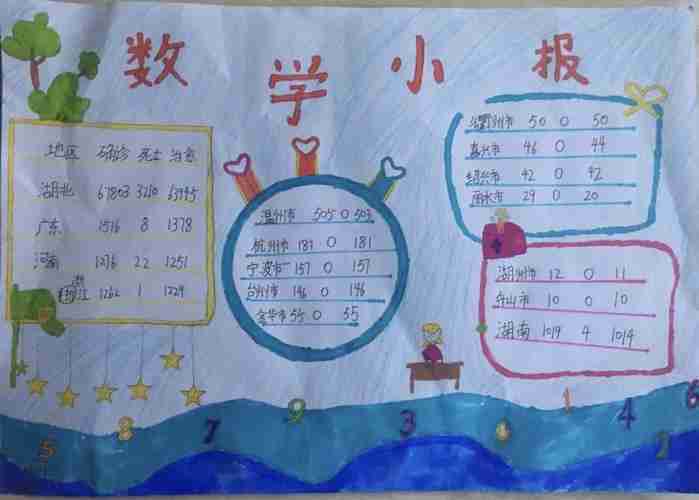 数学小报
地区 确诊 死亡 治愈
湖北 67803 3210 63945
广东 1516 8 1378
河南 1276 22 1251
浙江 1262 1 1229
温州市 505 0 503
杭州市 181 0 181
宁波市 157 0 157
台州市 146 0 146
金华市 55 0 55
衢州市 50 0 50
嘉兴市 46 0 44
绍兴市 42 0 42
丽水市 29 0 20
湖州市 12 0 11
舟山市 10 0 10
湖南 1019 4 1014
5 8 7 9 3 6 1 4 2 6